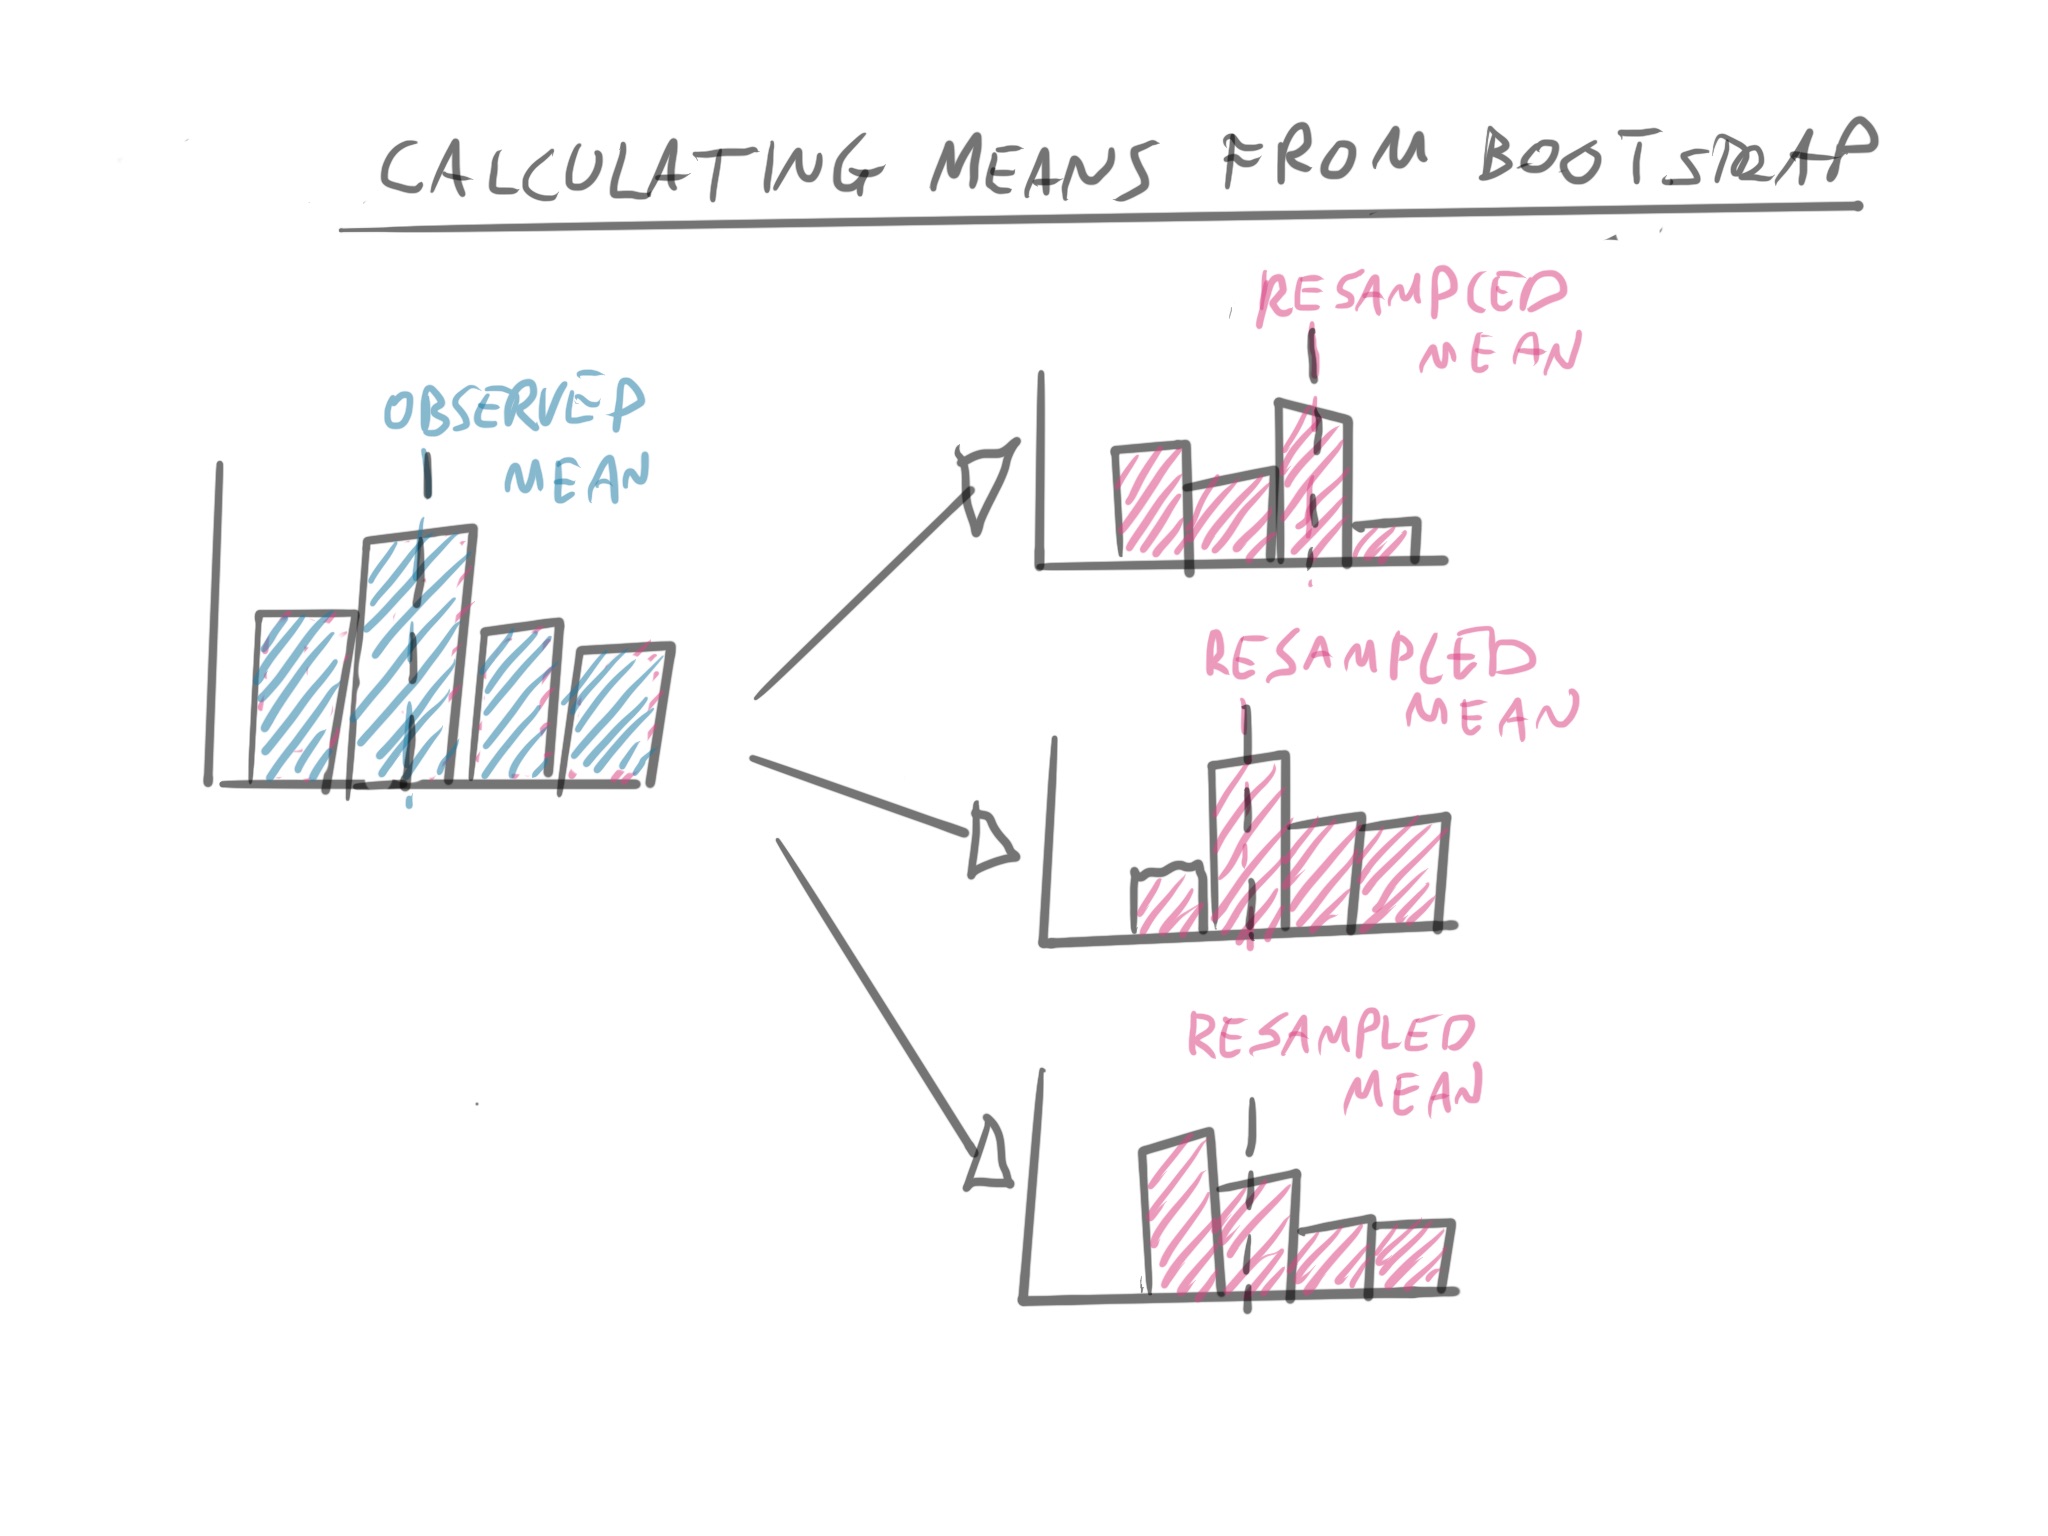 CALCULATING MEANS FROM BOOTSTRAP
OBSERVED
MEAN
RESAMPLED
MEAN
RESAMPLED
MEAN
RESAMPLED
MEAN